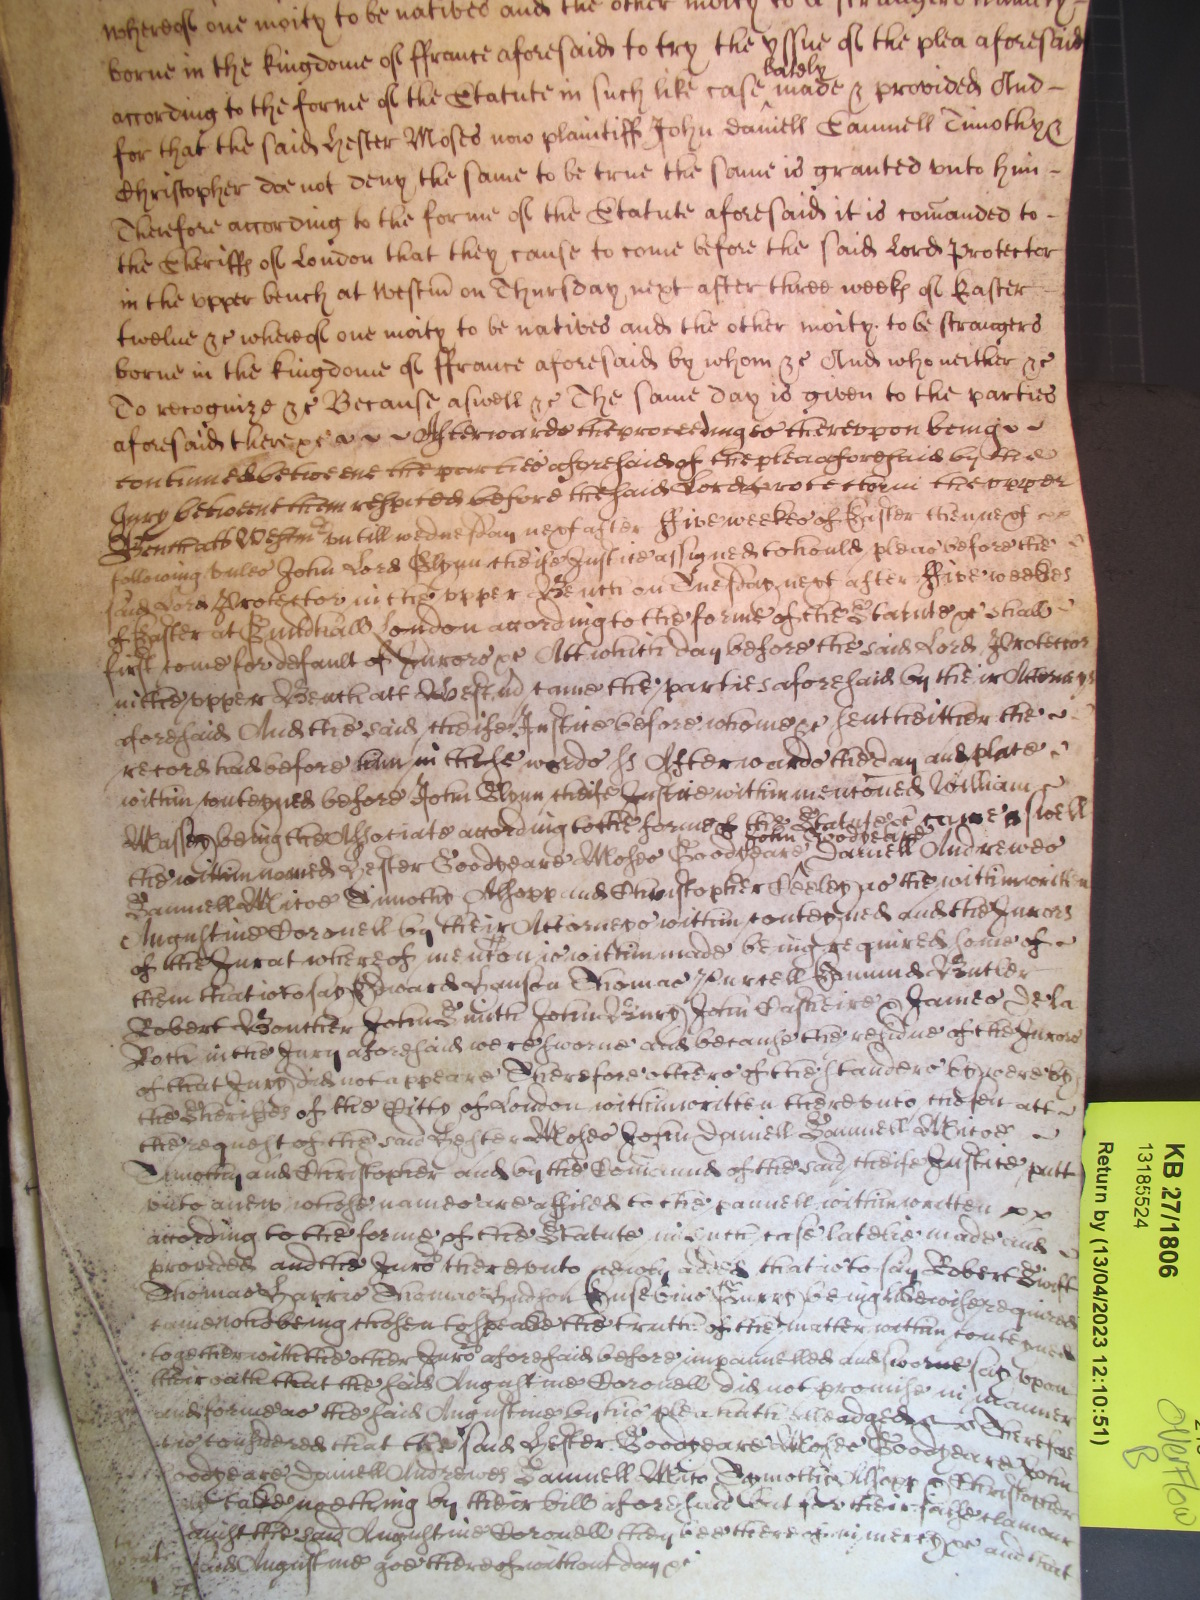 whereof one moity to be natives and the other moity to be strangers
borne in the kingdome of ffrance aforesaid to try the yssue of the plea aforesaid
lately
according to the forme of the Statute in such like case made & provided And
for that the said Hester Moses now plaintiff John daniell Samuell Timothy &
Christopher doe not deny the same to be true the same is granted vnto him
Therefore according to the forme of the Statute aforesaid it is comanded to
the Sheriffs of London that they cause to come before the said Lord Protector
in the vpper bench at Westm on Thursday next after three weeks of Easter
twelue &c whereof one moity to be natives and the other moity to be strangers
borne in the kingdome of ffrance aforesaid by whom &c And who neither &c
To recognize &c Because aswell &c The same day is given to the parties
aforesaid there &c Afterwards the proceedings therevpon being
continued betweene the parties aforesaid of the plea aforesaid by the
Jury betweene them respited before the said Lord Protector in the vpper
Bench att Westm vntill wednesday next after ffive weekes of Easter then next
following vnles John Lord Glynn cheife Justice assigned to hould pleas before the
said Lord Protector in the vpper Bench on Tuesday next after ffive weekes
of Easter at Guildhall London according to the forme of the Statute &c shall
first come for default of Jurors &c Att which day before the said Lord Protector
in the vpper Bench att Westm came the parties aforesaid by their Attorneys
aforesaid And the said cheife Justice before whome &c sent hither the
record had before him in these words ss Afterwards the day and place
within conteyned before John Glynn cheife Justice within mentioned William
Massey being the Associate according to the forme of the Statute &c came aswell
John Goodyeare
the within named Hester Goodyeare Moses Goodyeare Daniell Andrewes
Samuell Micoe Timothy Alsopp and Christopher as the within written
Augustine Coronell by their Attorneys within conteyned and the Jurors
of the Jurat whereof mention is within made being required some of
them that is to say Edward Hanson Thomas Purcell Edmund Butler
Robert Bouchier John Smith John Bury John & James De la
in the Jury aforesaid were sworne and because the residue of the Jurors
of that Jury did not appeare Therefore others of the standers by were by
the Sheriffes of the Citty of London within written therevnto chosen att
the request of the said Hester Moses John Daniell Samuell Micoe
Timothy and Christopher and by the Comaund of the said cheife Justice putt
vnto anew whose names are affiled to the pannell within written
according to the forme of the Statute in such case latelie made and
provided and the Jurors therevnto newly added that is to say Robert Swift
Thomas Harris Thomas Hudson Eusebius being likewise required
came who being chosen to speake the truth of the matter within conteyned
together with the other Jurors aforesaid before impannelled and sworne say vpon
their oath that the said Augustine Coronell did not promise in manner
and forme as the said Augustine by his plea hath alleadged &c Therefore
it is considered that the said Hester Goodyeare Moses Goodyeare John
Goodyeare Daniell Andrewes Samuell Mico Tymothie Alsopp & Christopher
take nothing by their bill aforesaid but for their false clamour
against the said Augustine Coronell they bee thereof in mercy &c and that
said Augustine goe thereof without day &c
KB 27/1806
13185524
Return by (13/04/2023 12:10:51)
Overflow
B